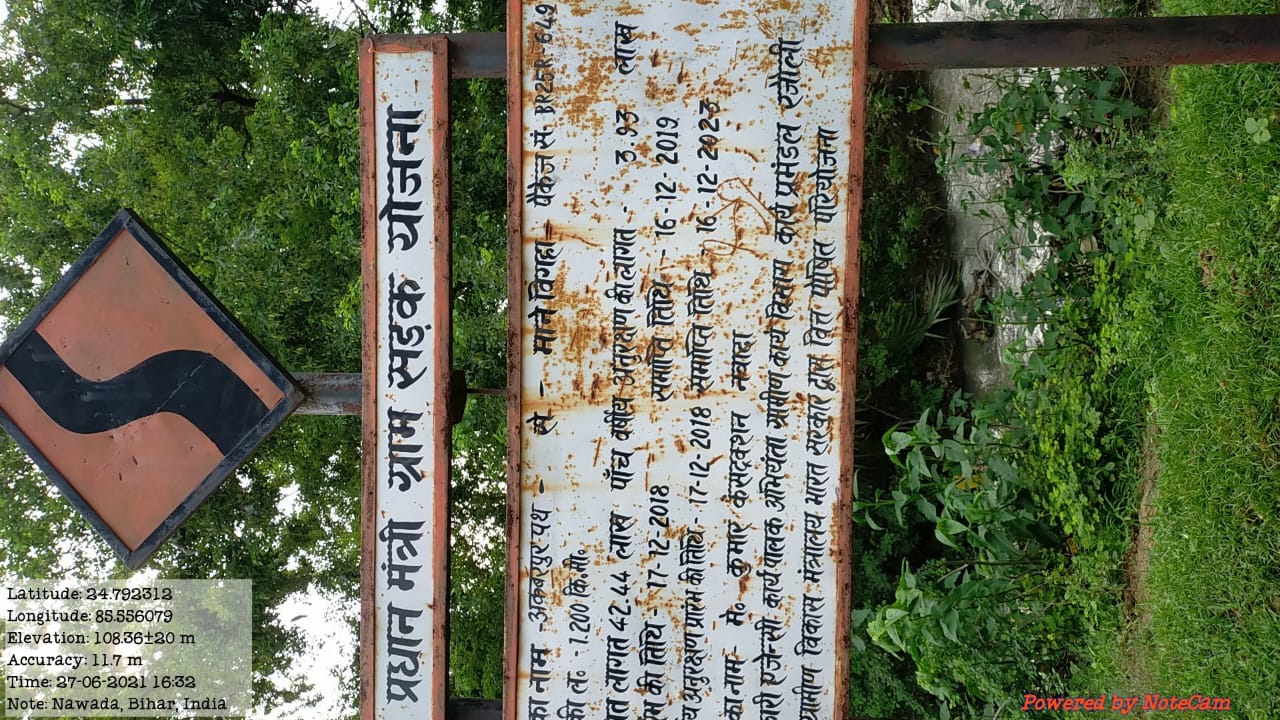 प्रधान मंत्री ग्राम सड़क योजना
का नाम - अकबरपुर पथ - से - माने विगहा - पैकेज सं. BR25R-649
की लं. - 1.200 कि.मी.
त लागत 42.44 लाख पाँच वर्षीय अनुरक्षण की लागत - 3.93 लाख
की तिथि - 17-12-2018 समाप्ति तिथि - 16-12-2019
अनुरक्षण प्रारंभ की तिथि - 17-12-2018 समाप्ति तिथि 16-12-2023
का नाम - मे० कुमार कंसट्रक्शन नवादा
कारी एजेन्सी कार्यपालक अभियंता ग्रामीण कार्य विभाग कार्य प्रमंडल रजौली
ग्रामीण विकास मंत्रालय भारत सरकार द्वारा वित्त पोषित परियोजना
Latitude: 24.792312
Longitude: 85.556079
Elevation: 108.36±20 m
Accuracy: 11.7 m
Time: 27-06-2021 16:32
Note: Nawada, Bihar, India
Powered by NoteCam